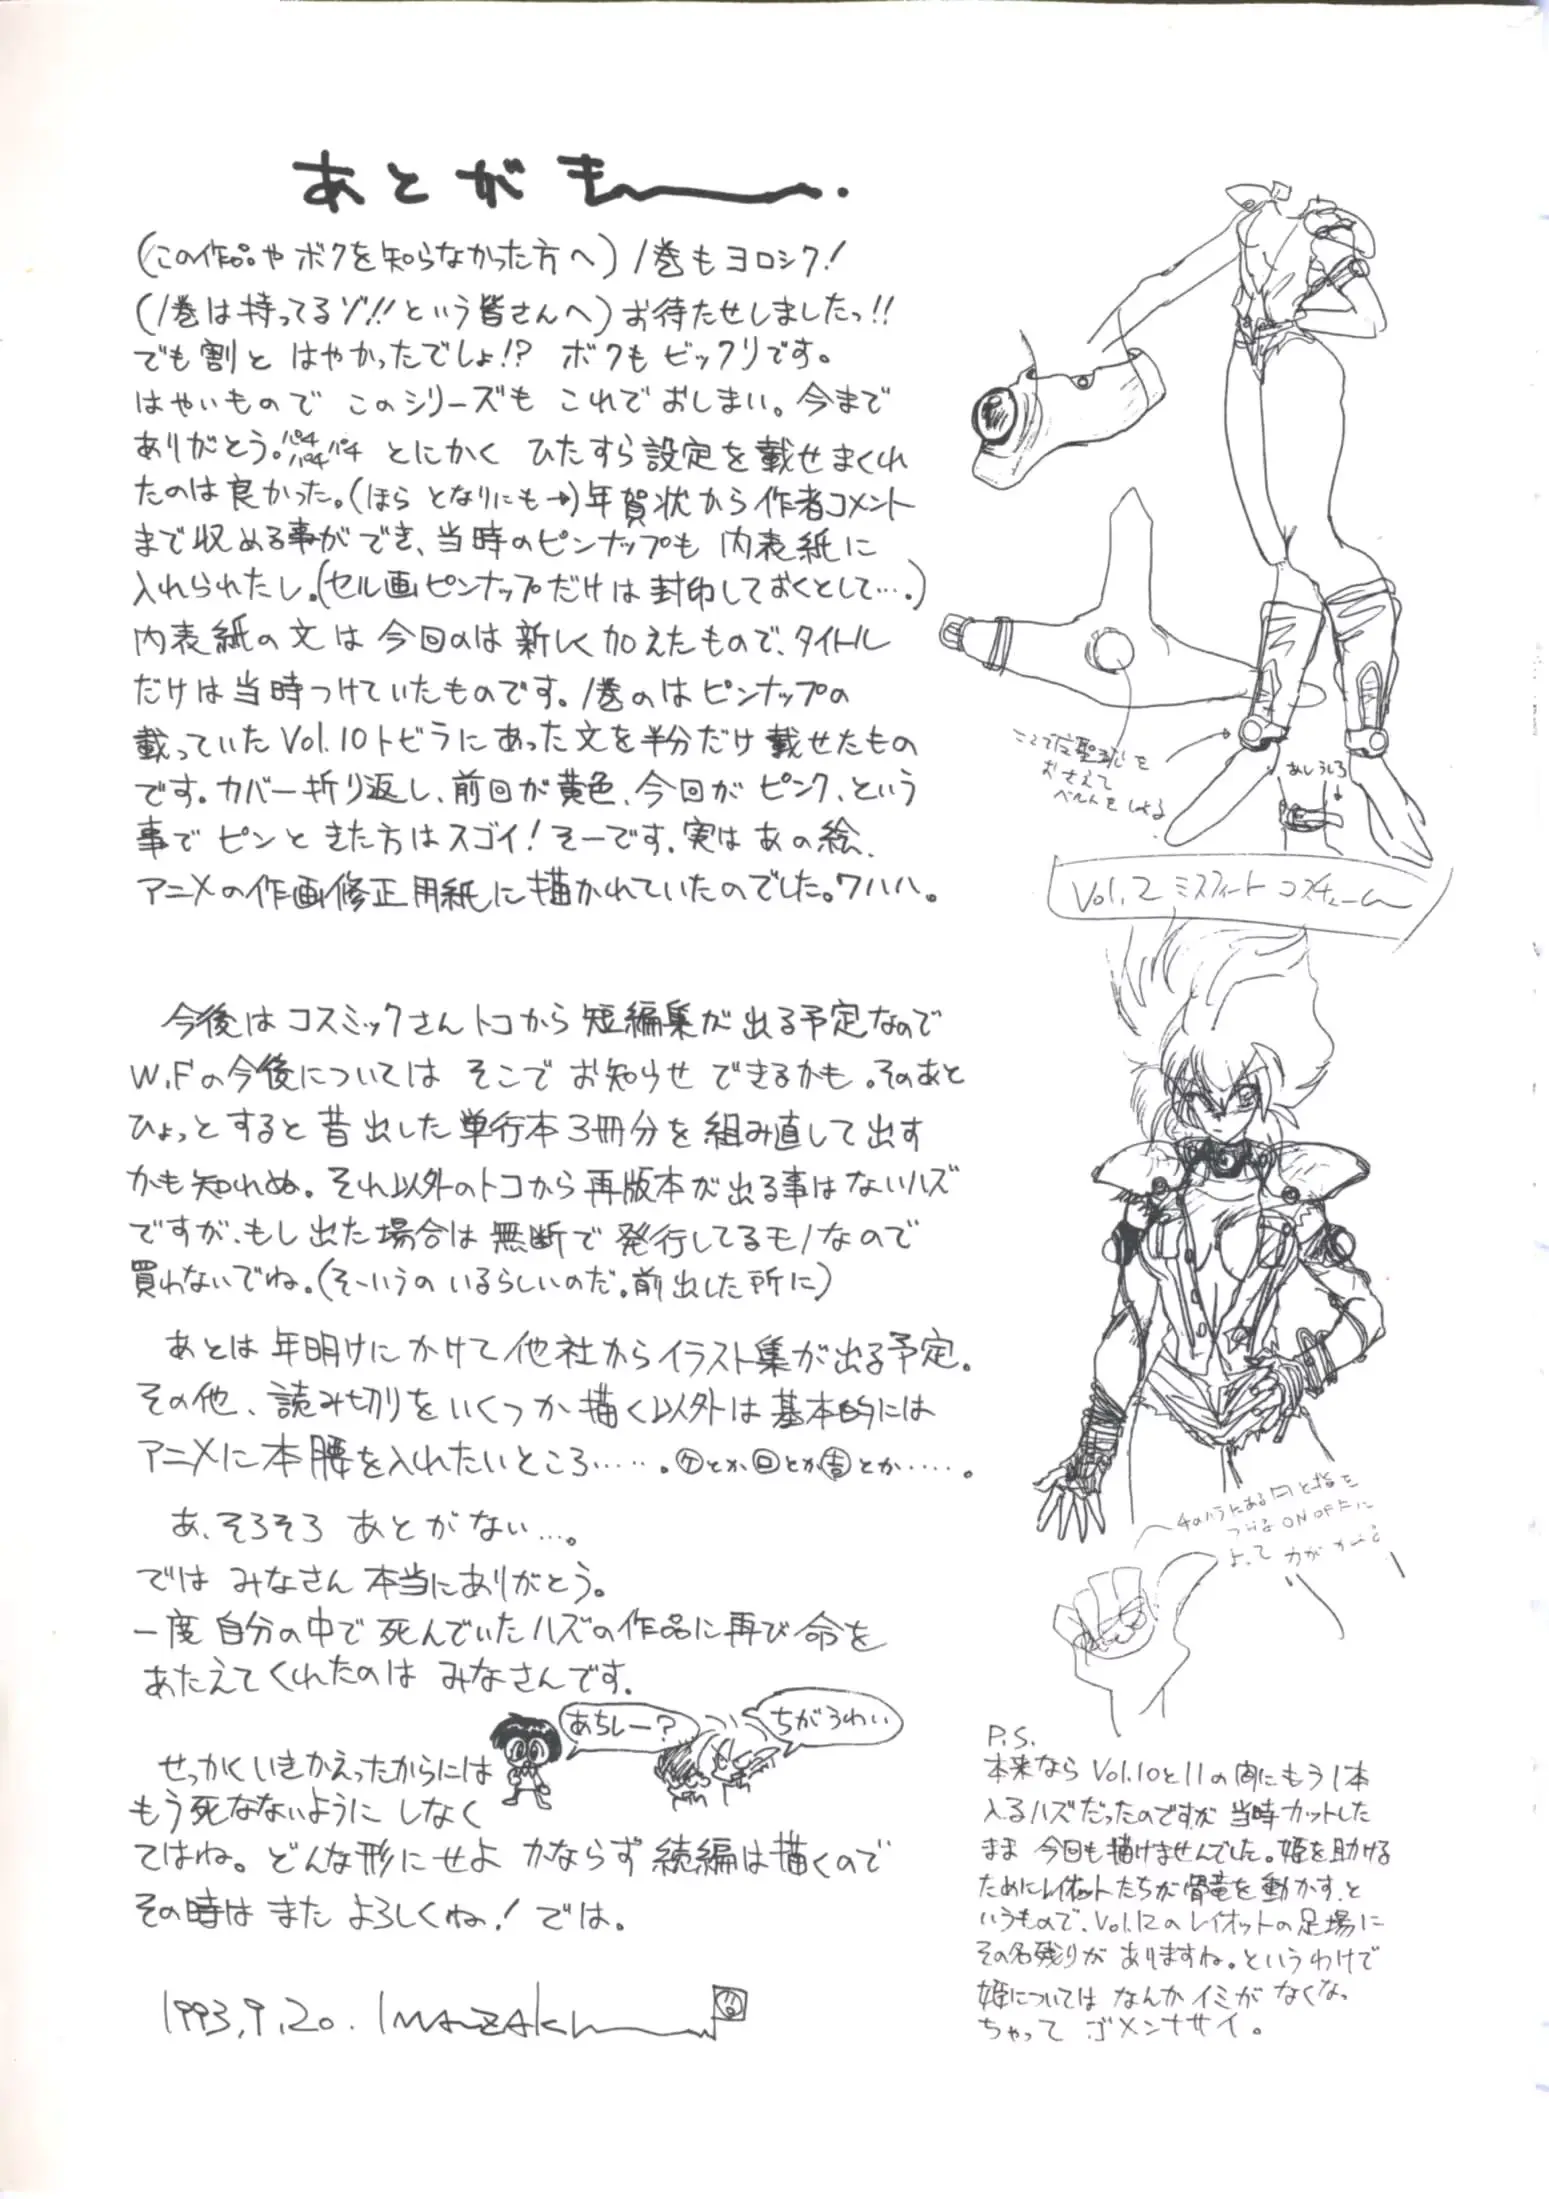 あとがき
(この作品やボクを知らなかった方へ)1巻もヨロシク!
(1巻は持ってるゾ!!という皆さんへ)お待たせしましたっ!!
でも割と はやかったでしょ!? ボクも ビックリです。
はやいもので このシリーズも これで おしまい。今まで
ありがとう。パチパチパチ とにかく ひたすら設定を載せまくれ
たのは良かった。(ほら となりにも→)年賀状から作者コメント
まで収める事ができ、当時のピンナップも 内表紙に
入れられたし。(セル画ピンナップだけは封印しておくとして….)
内表紙の文は 今回のは新しく加えたもので、タイトル
だけは当時つけていたものです。1巻のはピンナップの
載っていたVol.10トビラにあった文を半分だけ載せたもの
です。カバー折り返し、前回が黄色、今回が ピンク、という
事で ピンときた方はスゴイ!そーです.実は あの絵、
アニメの作画修正用紙に描かれていたのでした。ワハハ。
今後はコスミックさんトコから短編集が出る予定なので
W.Fの今後については そこで お知らせできるかも。そのあと
ひょっとすると昔出した単行本3冊分を組み直して出す
かも知れぬ。それ以外のトコから再版本が出る事はないハズ
ですが、もし出た場合は無断で発行してるモノなので
買わないでね。(そーいうの いるらしいのだ。前出した所に)
あとは年明けにかけて他社からイラスト集が出る予定。
その他、読み切りをいくつか描く以外は基本的には
アニメに本腰を入れたいところ……。㋘とか㊀とか㊂とか……。
あ、そろそろ あとがない…。
では みなさん本当にありがとう。
一度自分の中で死んでいたハズの作品に再び命を
あたえてくれたのは みなさんです.
あちしー?
ちがうわい
せっかくいきかえったからには
もう死なないように しなく
てはね。どんな形にせよ かならず続編は描くので
その時は また よろしくね! では。
1993.9.20. Imazaki
ここで
おさえて
ベルトをしめる
あしうしろ
Vol.2 ミスフィート コスチューム
手のハラにある
ON OFFに
よって 力が
P.S.
本来なら Vol.10と11の間にもう1本
入るハズだったのですが 当時カットした
まま 今回も描けませんでした。姫を助ける
ためにレイオットたちが骨竜を動かす、と
いうもので、Vol.12のレイオットの足場に
その名残りが ありますね。というわけで
姫については なんか イミが なくなっ
ちゃって ゴメンナサイ。